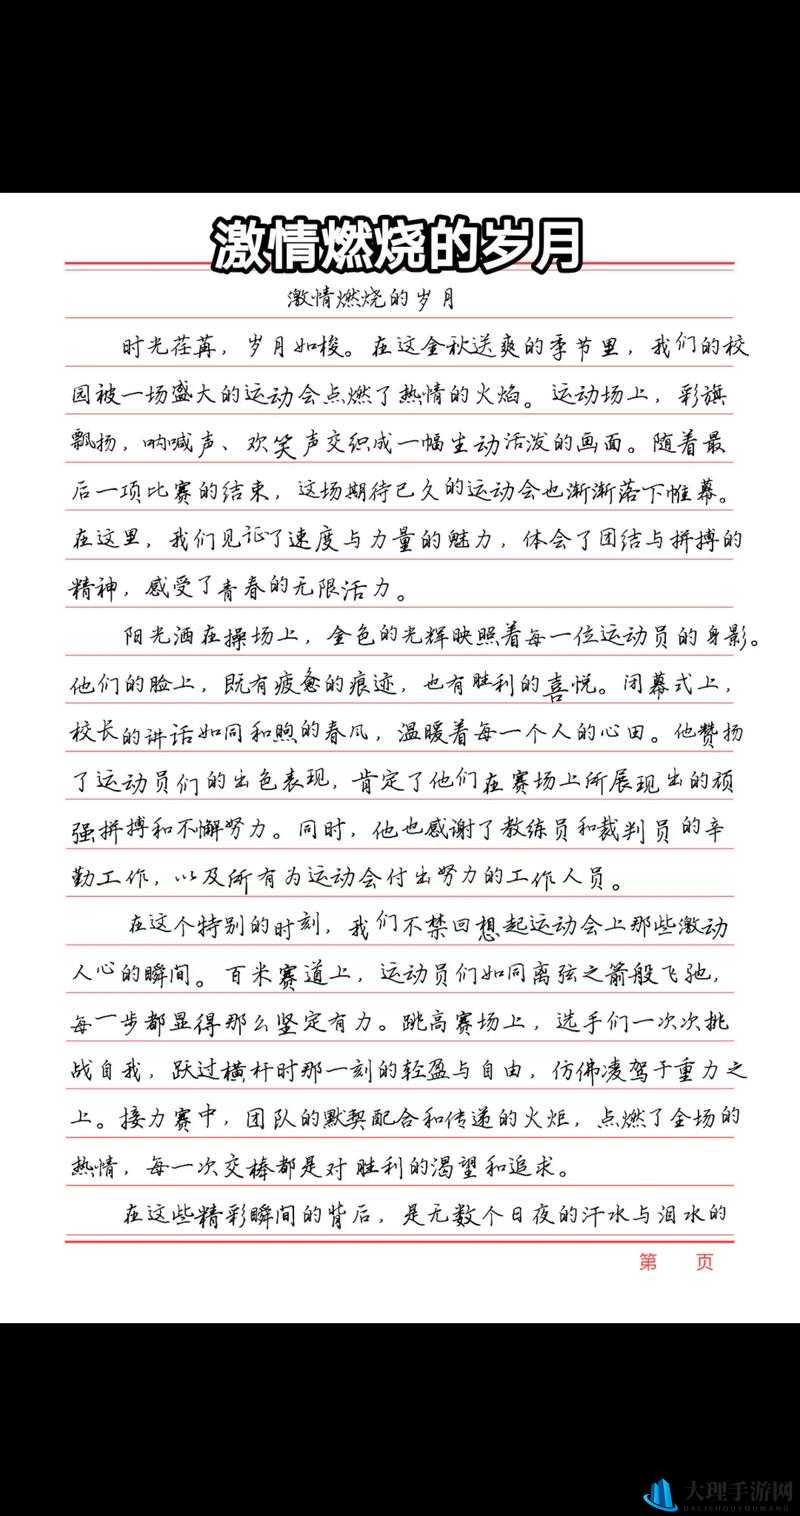 激情燃烧的岁月
激情燃烧的岁月
时光荏苒，岁月如梭。在这金秋送爽的季节里，我们的校
园被一场盛大的运动会点燃了热情的火焰。运动场上，彩旗
飘扬，呐喊声、欢笑声交织成一幅生动活泼的画面。随着最
后一项比赛的结束，这场期待已久的运动会也渐渐落下帷幕。
在这里，我们见证了速度与力量的魅力，体会了团结与拼搏的
精神，感受了青春的无限活力。
阳光洒在操场上，金色的光辉映照着每一位运动员的身影。
他们的脸上，既有疲惫的痕迹，也有胜利的喜悦。闭幕式上，
校长的讲话如同和煦的春风，温暖着每一个人的心田。他赞扬
了运动员们的出色表现，肯定了他们在赛场上所展现出的顽
强拼搏和不懈努力。同时，他也感谢了教练员和裁判员的辛
勤工作，以及所有为运动会付出努力的工作人员。
在这个特别的时刻，我们不禁回想起运动会上那些激动
人心的瞬间。百米赛道上，运动员们如同离弦之箭般飞驰，
每一步都显得那么坚定有力。跳高赛场上，选手们一次次挑
战自我，跃过横杆时那一刻的轻盈与自由，仿佛凌驾于重力之
上。接力赛中，团队的默契配合和传递的火炬，点燃了全场的
热情，每一次交棒都是对胜利的渴望和追求。
在这些精彩瞬间的背后，是无数个日夜的汗水与泪水的
第 页
大理手游网
DALISHOUYOUWANG